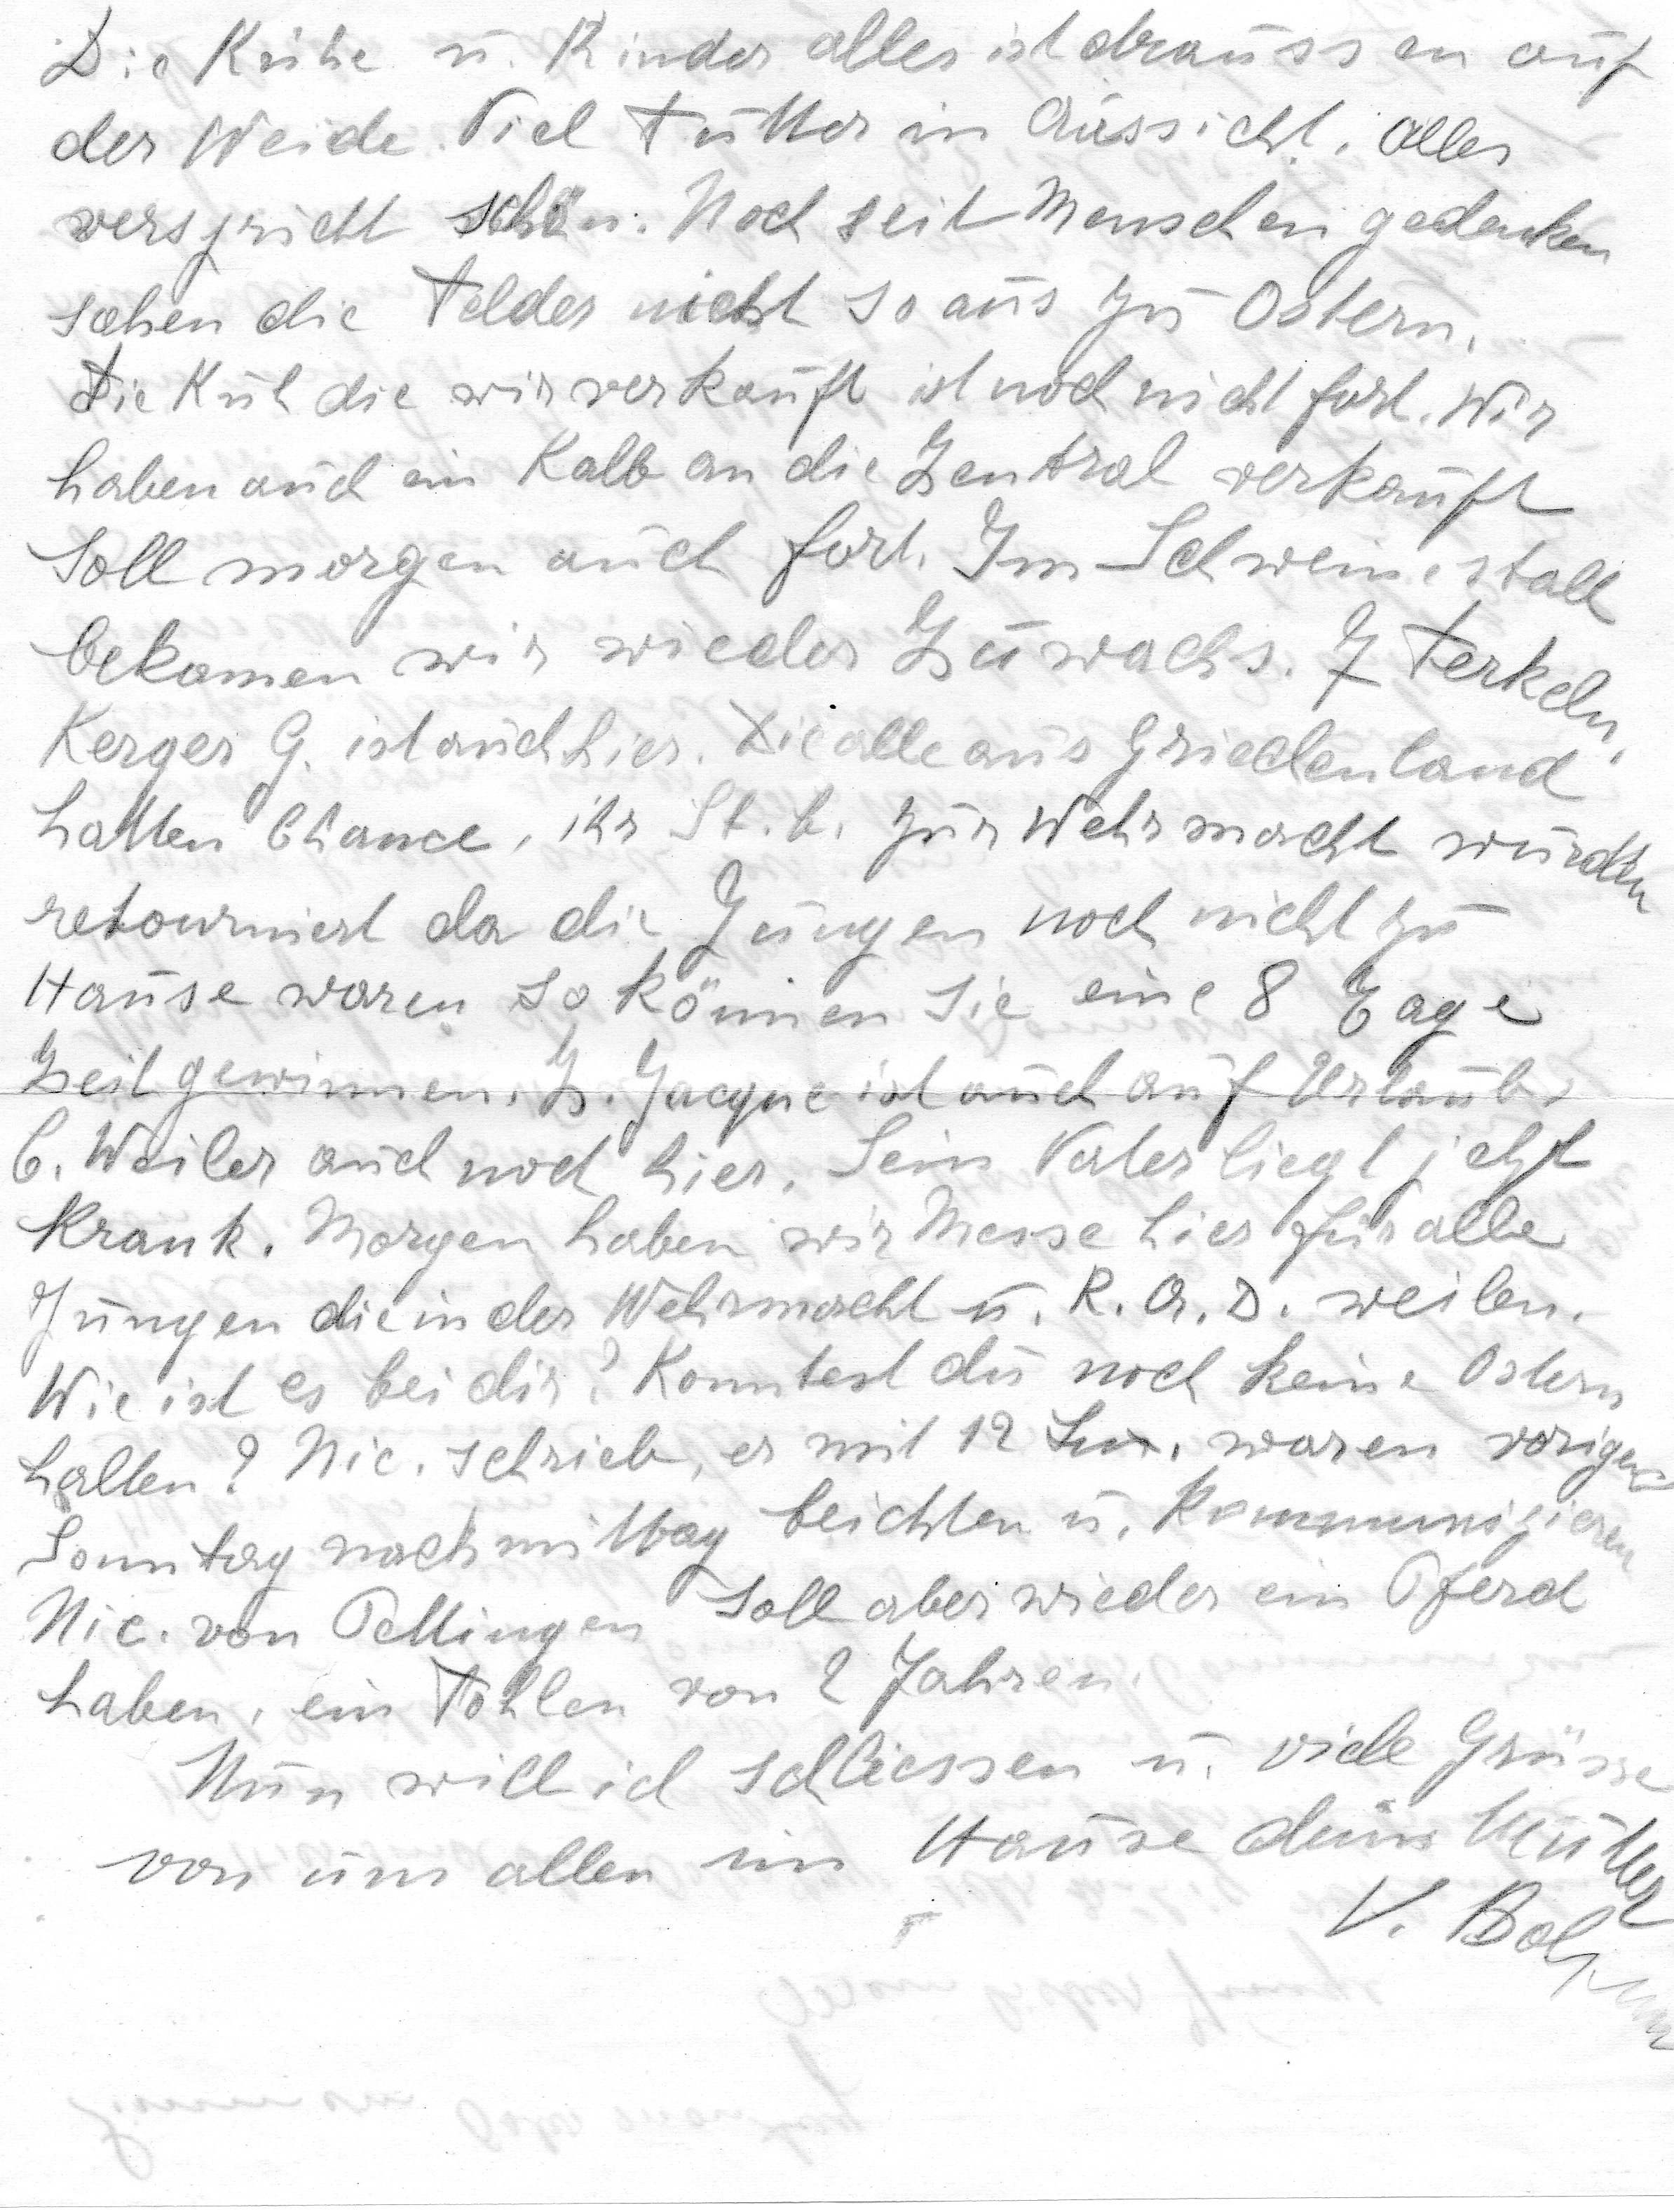 Die Kühe u. Rinder alles ist draussen auf
der Weide. Viel Futter in Aussicht. Alles
verspricht schön. Noch seit Menschen gedenken
sahen die Felder nicht so aus zu Ostern.
Die Kuh die wir verkauft ist noch nicht fort. Wir
haben auch ein Kalb an die Zentral verkauft
Soll morgen auch fort. Im Schweinestall
bekomen wir wieder Zuwachs. 7 Ferkeln.
Kerger G. ist auch hier. Die alle aus Griechenland
hatten Chance, ihr St. b. zur Wehrmacht wurden
retourniert da die Jungen noch nicht zu
Hause waren so können sie eine 8 Tage
Zeit gewinnen. Z. Jacque ist auch auf Urlaub.
C. Weiler auch noch hier. Sein Vater liegt jetzt
Krank. Morgen haben wir Messe hier für alle
Jungen die in der Wehrmacht u. R.A.D. weilen.
Wie ist es bei dir? Konntest du noch keine Ostern
halten? Nic. schrieb, er mit 12 waren vorigen
Sonntag nachmittag beichten u. Kommunizieren
Nic. von Pettingen soll aber wieder ein Pferd
haben, ein Fohlen von 2 Jahren.
Nun will ich schliessen u. viele Grüsse
von uns allen im Hause deine Mutter
V.